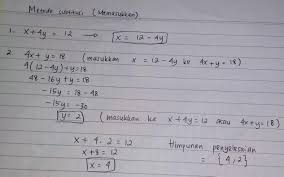 Metode substitusi (Memasukkan)
1. x + 4y = 12 → x = 12 - 4y
2. 4x + y = 18 (masukkan x = 12 - 4y ke 4x + y = 18)
4(12 - 4y) + y = 18
48 - 16y + y = 18
-15y = 18 - 48
-15y = -30
y = 2 (masukkan ke x + 4y = 12 atau 4x + y = 18)
x + 4 . 2 = 12
x + 8 = 12
x = 4
Himpunan penyelesaian
= { 4, 2 }